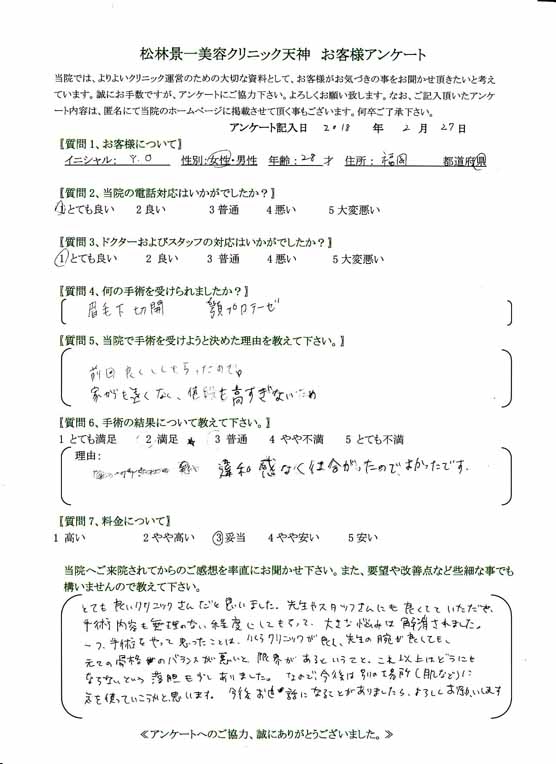 松林景一美容クリニック天神　お客様アンケート
当院では、よりよいクリニック運営のための大切な資料として、お客様がお気づきの事をお聞かせ頂きたいと考え
ています。誠にお手数ですが、アンケートにご協力下さい。よろしくお願い致します。なお、ご記入頂いたアンケ
ート内容は、匿名にて当院のホームページに掲載させて頂く事もございます。何卒ご了承下さい。
アンケート記入日 2018 年 2 月 27 日
【質問1、お客様について】
イニシャル： Y.O 性別:女性・男性 年齢：28才 住所： 福岡 都道府県
【質問2、当院の電話対応はいかがでしたか？】
1とても良い 2良い 3普通 4悪い 5大変悪い
【質問3、ドクターおよびスタッフの対応はいかがでしたか？】
1とても良い 2良い 3普通 4悪い 5大変悪い
【質問4、何の手術を受けられましたか？】
眉毛下切開 顎プロテーゼ
【質問5、当院で手術を受けようと決めた理由を教えて下さい。】
前回良くしてもらったので。
家からも遠くなく、値段も高すぎないため
【質問6、手術の結果について教えて下さい。】
1とても満足 2満足 3普通 4やや不満 5とても不満
理由:
違和感なく仕上がったのでよかったです。
【質問7、料金について】
1高い 2やや高い 3妥当 4やや安い 5安い
当院へご来院されてからのご感想を率直にお聞かせ下さい。また、要望や改善点など些細な事でも
構いませんので教えて下さい。
とても良いクリニックさんだと思いました。先生やスタッフさんにも良くしていただき、
手術内容も無理のない程度にしてもらって、大きな悩みは解消されました。
一つ、手術をやって思ったことは、いくらクリニックが良く、先生の腕が良くても、
元々の骨格のバランスが悪いと限界があるということと、これ以上はどうにも
ならないという落胆も少しありました。なので、今後は別の場所(肌など)に
気を使っていこうと思います。今後お世話になることがありましたら、よろしくお願いします
≪アンケートへのご協力、誠にありがとうございました。≫